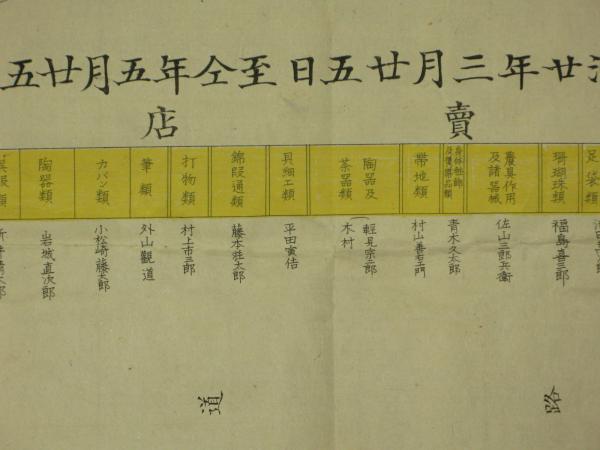 治廿年三月廿五日至仝年五月廿五
賣店
足袋類
珊瑚珠類
農具作用及諸器械
身体粧飾及優等品類
帯地類
陶器及茶器類
貝細工類
錦段通類
打物類
筆類
カバン類
陶器類
呉服類
福島喜三郎
佐山三郎兵衛
青木久太郎
村山善右エ門
軽見宗二郎
木村
平田寅佶
藤本荘太郎
村上市三郎
外山觀道
小松崎藤太郎
岩城直次郎
路道